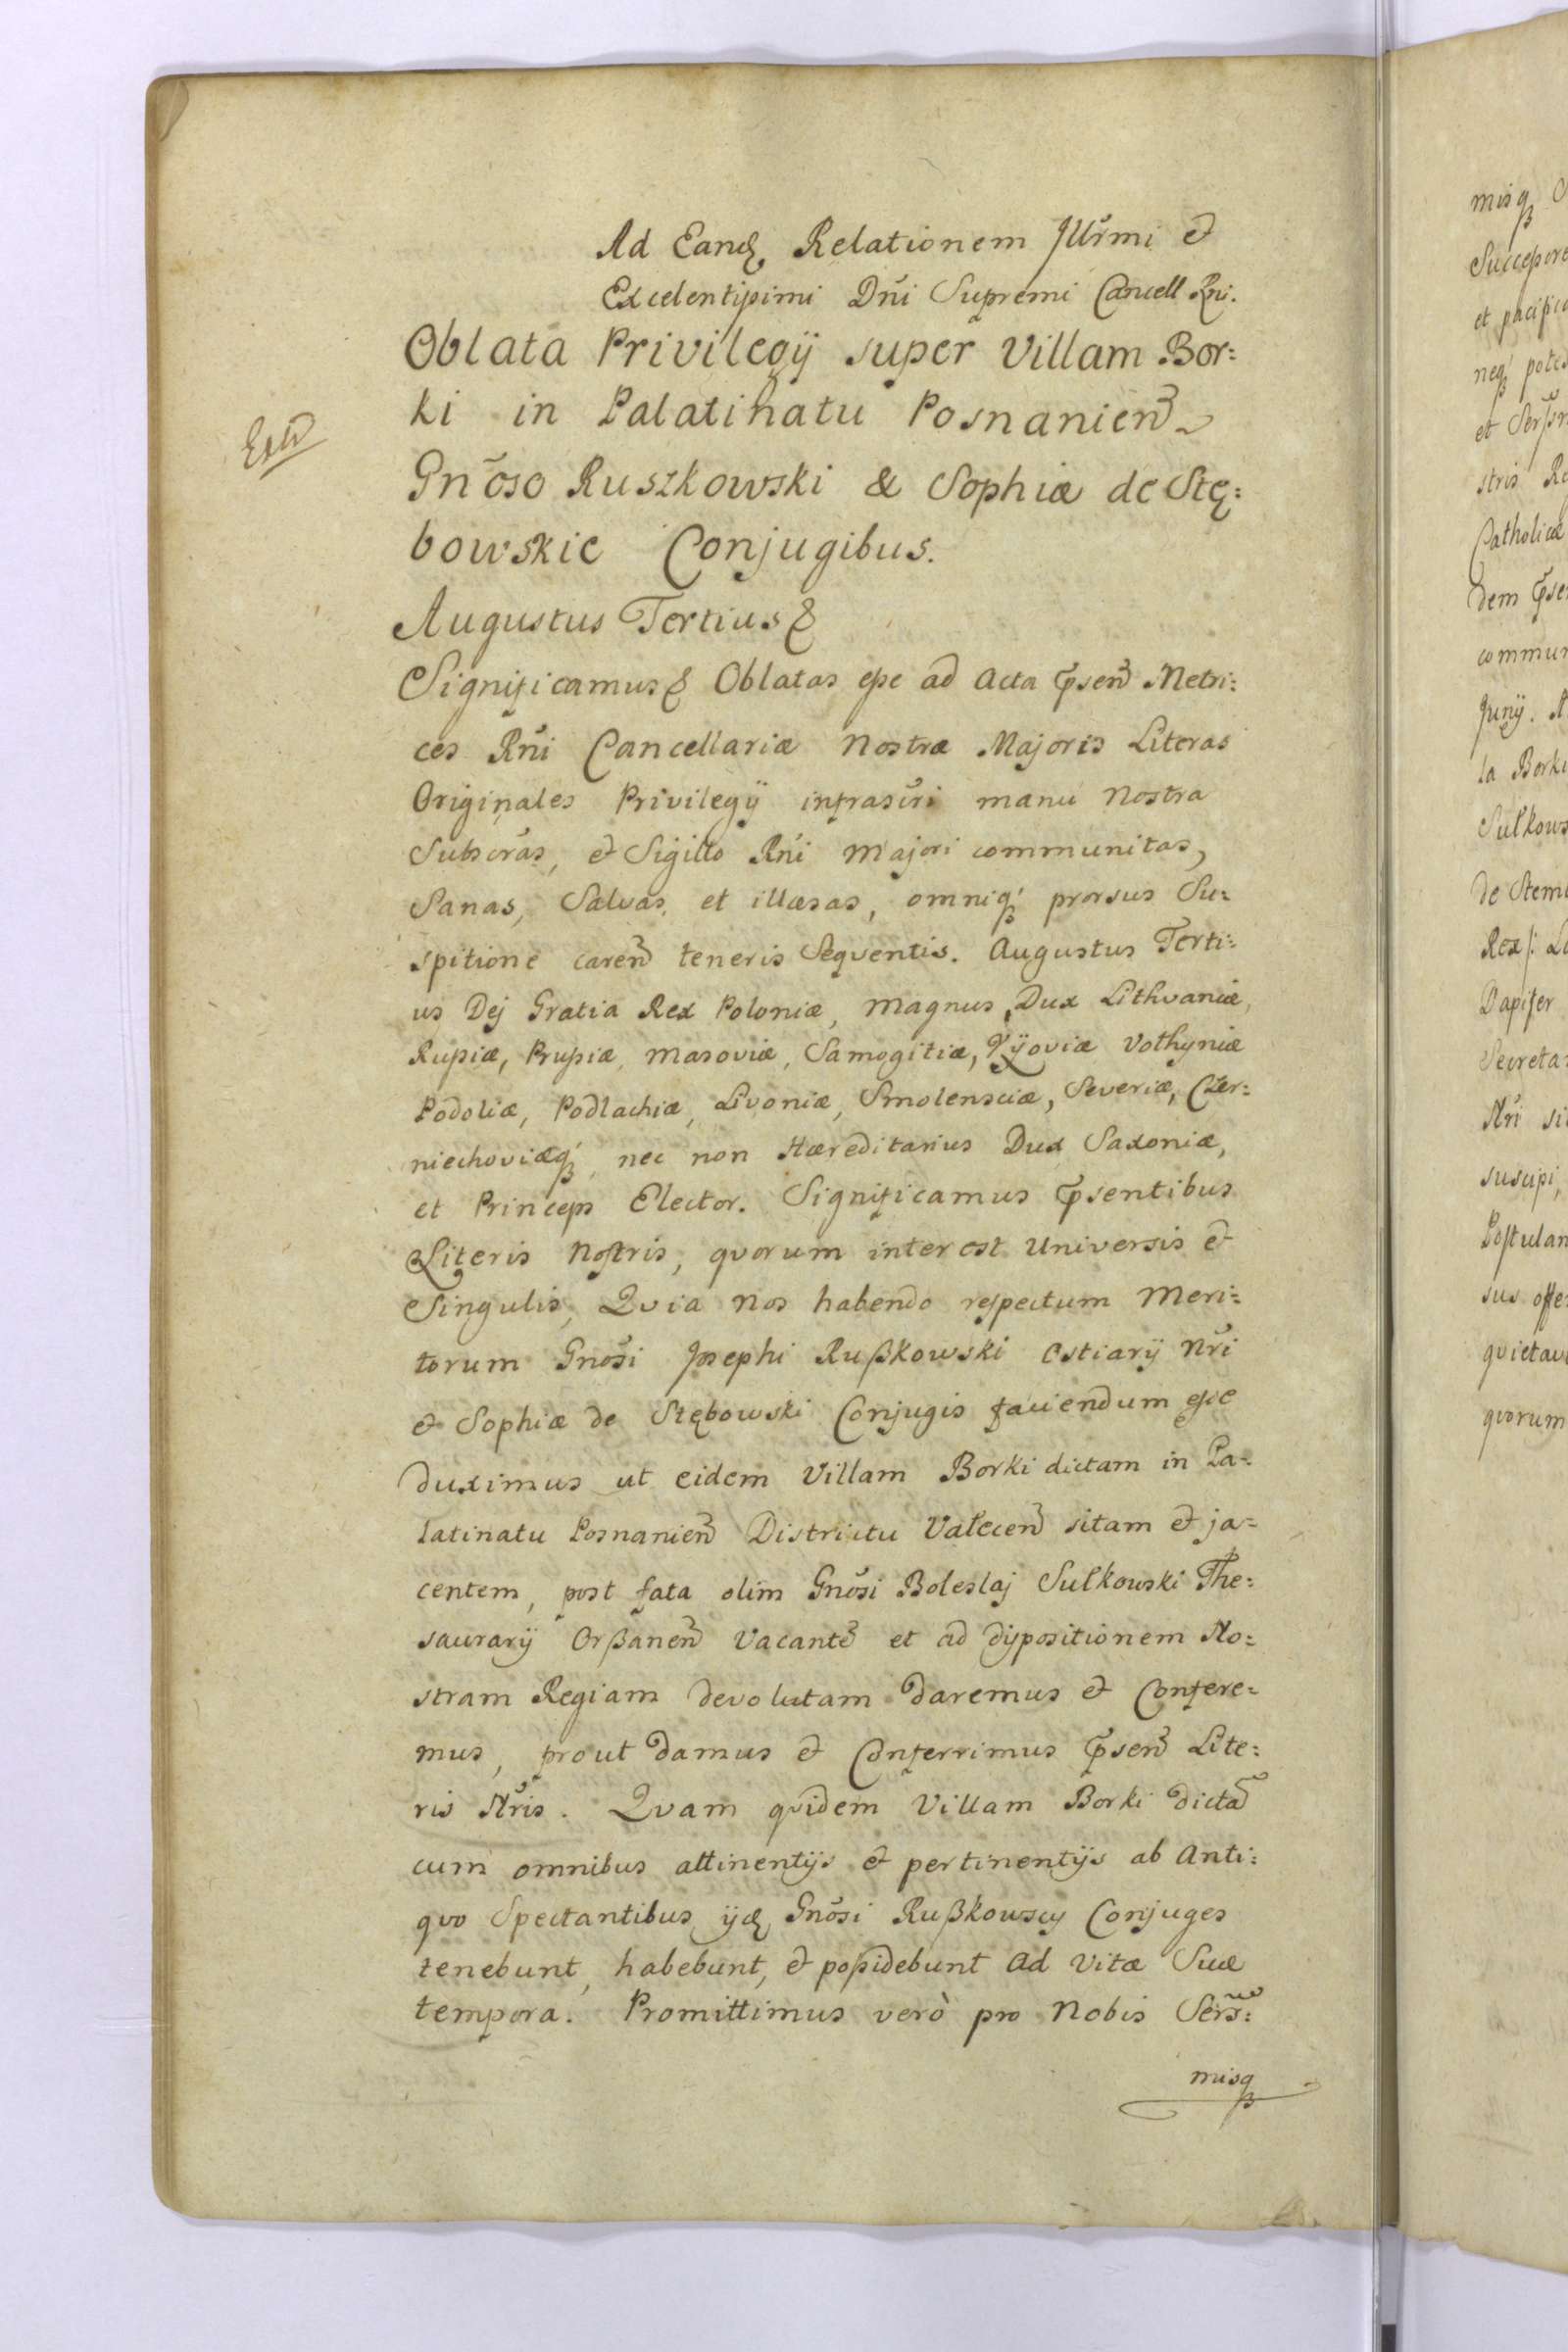 Ad Eand. Relationem Jllrmi et
Excelentissimi Dni Supremi Cancell Rni.
Oblata Privilegij super Villam Bor:
ki in Palatinatu Posnanien
Gnoso Ruszkowski & Sophiæ de Stę:
bowskie Conjugibus.
Extd
Augustus Tertius &
Significamus & Oblatas esse ad Acta Psen Metri:
ces Rni Cancellariæ Nostræ Majoris Literas
Originales Privilegij infrascri manu Nostra
Subscras, et Sigillo Rni Majori communitas,
Sanas, Salvas, et illæsas, omniq prorsus Su:
spitione caren teneris Seqventis. Augustus Terti:
us Dej Gratia Rex Poloniæ, Magnus, Dux Lithvaniæ,
Russiæ, Prussiæ, Masoviæ, Samogitiæ, Kijoviæ Volhyniæ
Podoliæ, Podlachiæ, Livoniæ, Smolensciæ, Severiæ, Czer:
niechoviæq, nec non Hæreditarius Dux Saxoniæ,
et Princeps Elector. Significamus Psentibus
Literis Nostris, qvorum interest Universis et
Singulis, Qvia Nos habendo respectum Meri:
torum Gnosi Josephi Rußkowski Ostiarij Nri
et Sophiæ de Stębowski Conjugis faciendum esse
duximus ut eidem Villam Borki dictam in Pa:
latinatu Posnanien Districtu Valecen sitam et ja:
centem, post fata olim Gnosi Boleslaj Sułkowski The:
saurarij Orßanen Vacante et ad dispositionem No:
stram Regiam devolutam daremus et Confere:
mus, prout damus et Conferrimus Psen Lite:
ris Nris. Qvam qvidem Villam Borki dicta
cum omnibus attinentijs et pertinentijs ab Anti:
qvo Spectantibus ijd, Gnosi Rußkowscy Conjuges
tenebunt, habebunt, et possidebunt ad Vitæ Suæ
tempora. Promittimus verò pro Nobis Sers:
misq
misq
Successore
et pacific
neq potes
stris Re
Catholicæ
dem Pse
commun
Junij. A
la Borki
Sułkows
de Stem
Rex
Dapifer
Secreta
Nri si
suscipi,
Postulan
sus offe
qvietav
qvorum